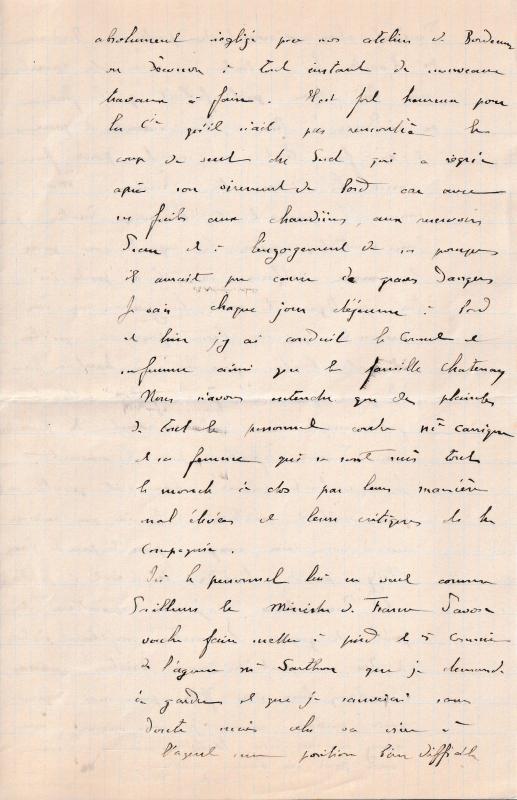 absolument négligé par nos ateliers de Bordeaux
on découvre à tout instant de nouveaux
travaux à faire. Il est fort heureux pour
la Cie qu'il n'ait pas rencontré le
coup de vent du Sud qui a régné
après son virement de bord car avec
ses fuites aux chaudières, aux réservoirs
d'eau et à l'engorgement de ses pompes
il aurait pu courir de graves dangers
Je vais chaque jour déjeuner à bord
et hier j'y ai conduit le Consul et
ainsi que la famille Chatenay
Nous n'avons entendu que des plaintes
de tout le personnel contre Mr
et sa femme qui se sont mis tout
le monde à dos par leurs manières
mal élevées et leurs critiques de la
Compagnie.
Ici le personnel lui en veut comme
d'ailleurs le Ministre de France d'avoir
voulu faire mettre à pied le
de l'agence Mr que je demande
à garder et que je sauverai sans
doute mais cela va créer à
l'agent une position bien difficile